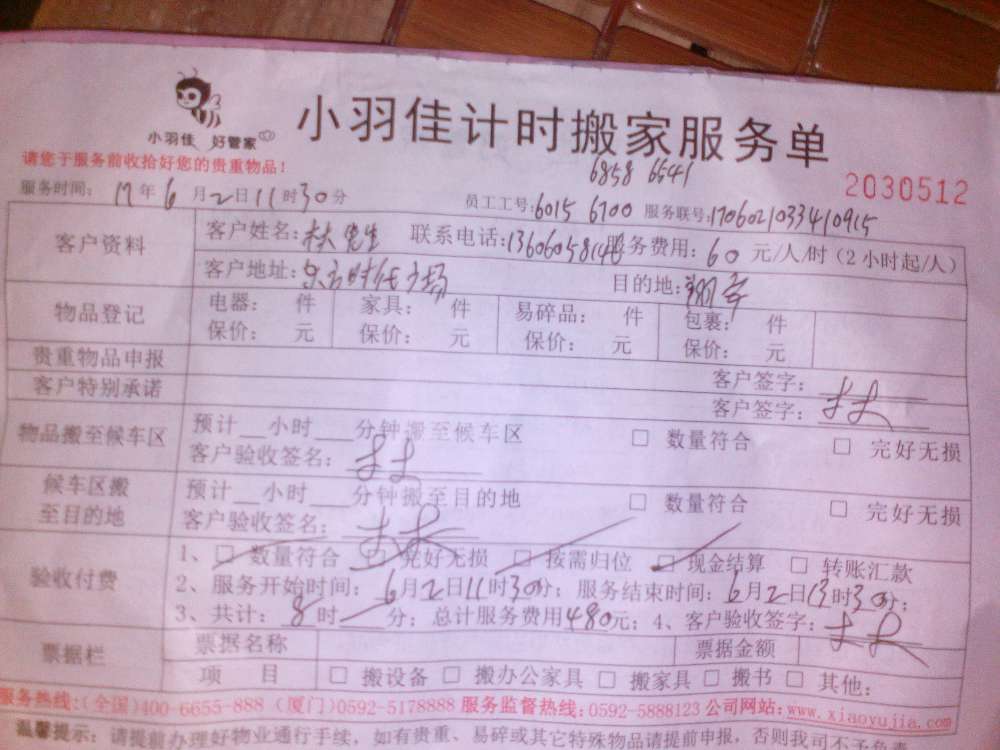 小羽佳 好管家
小羽佳计时搬家服务单
请您于服务前收拾好您的贵重物品!
6858 6541
2030512
服务时间: 17年6月2日11时30分 员工工号:6015 6700 服务联号:1706021033410915
客户资料 客户姓名:林先生 联系电话: 服务费用:60元/人/时(2小时起/人)
客户地址:东方时代广场 目的地:
物品登记 电器: 件 家具: 件 易碎品: 件 包裹: 件
保价: 元 保价: 元 保价: 元 保价: 元
贵重物品申报 客户签字:
客户特别承诺 客户签字:
物品搬至候车区 预计__小时___分钟搬至候车区 □ 数量符合 □ 完好无损
客户验收签名:
候车区搬至目的地 预计__小时___分钟搬至目的地 □ 数量符合 □ 完好无损
客户验收签名:
验收付费 1、□ 数量符合 □ 完好无损 □ 按需归位 □ 现金结算 □ 转账汇款
2、服务开始时间:6月2日11时30分;服务结束时间:6月2日13时30分;
3、共计:8时/分;总计服务费用480元;4、客户验收签字:
票据栏 票据名称 票据金额
项 目 □ 搬设备 □ 搬办公家具 □ 搬家具 □ 搬书 □ 其他:
服务热线:(全国)400-6655-888 (厦门)0592-5178888 服务监督热线:0592-5888123 公司网站:www.xiaoyujia.com
温馨提示:请提前办理好物业通行手续,如有贵重、易碎或其它特殊物品请提前申报,否则我司不予负责